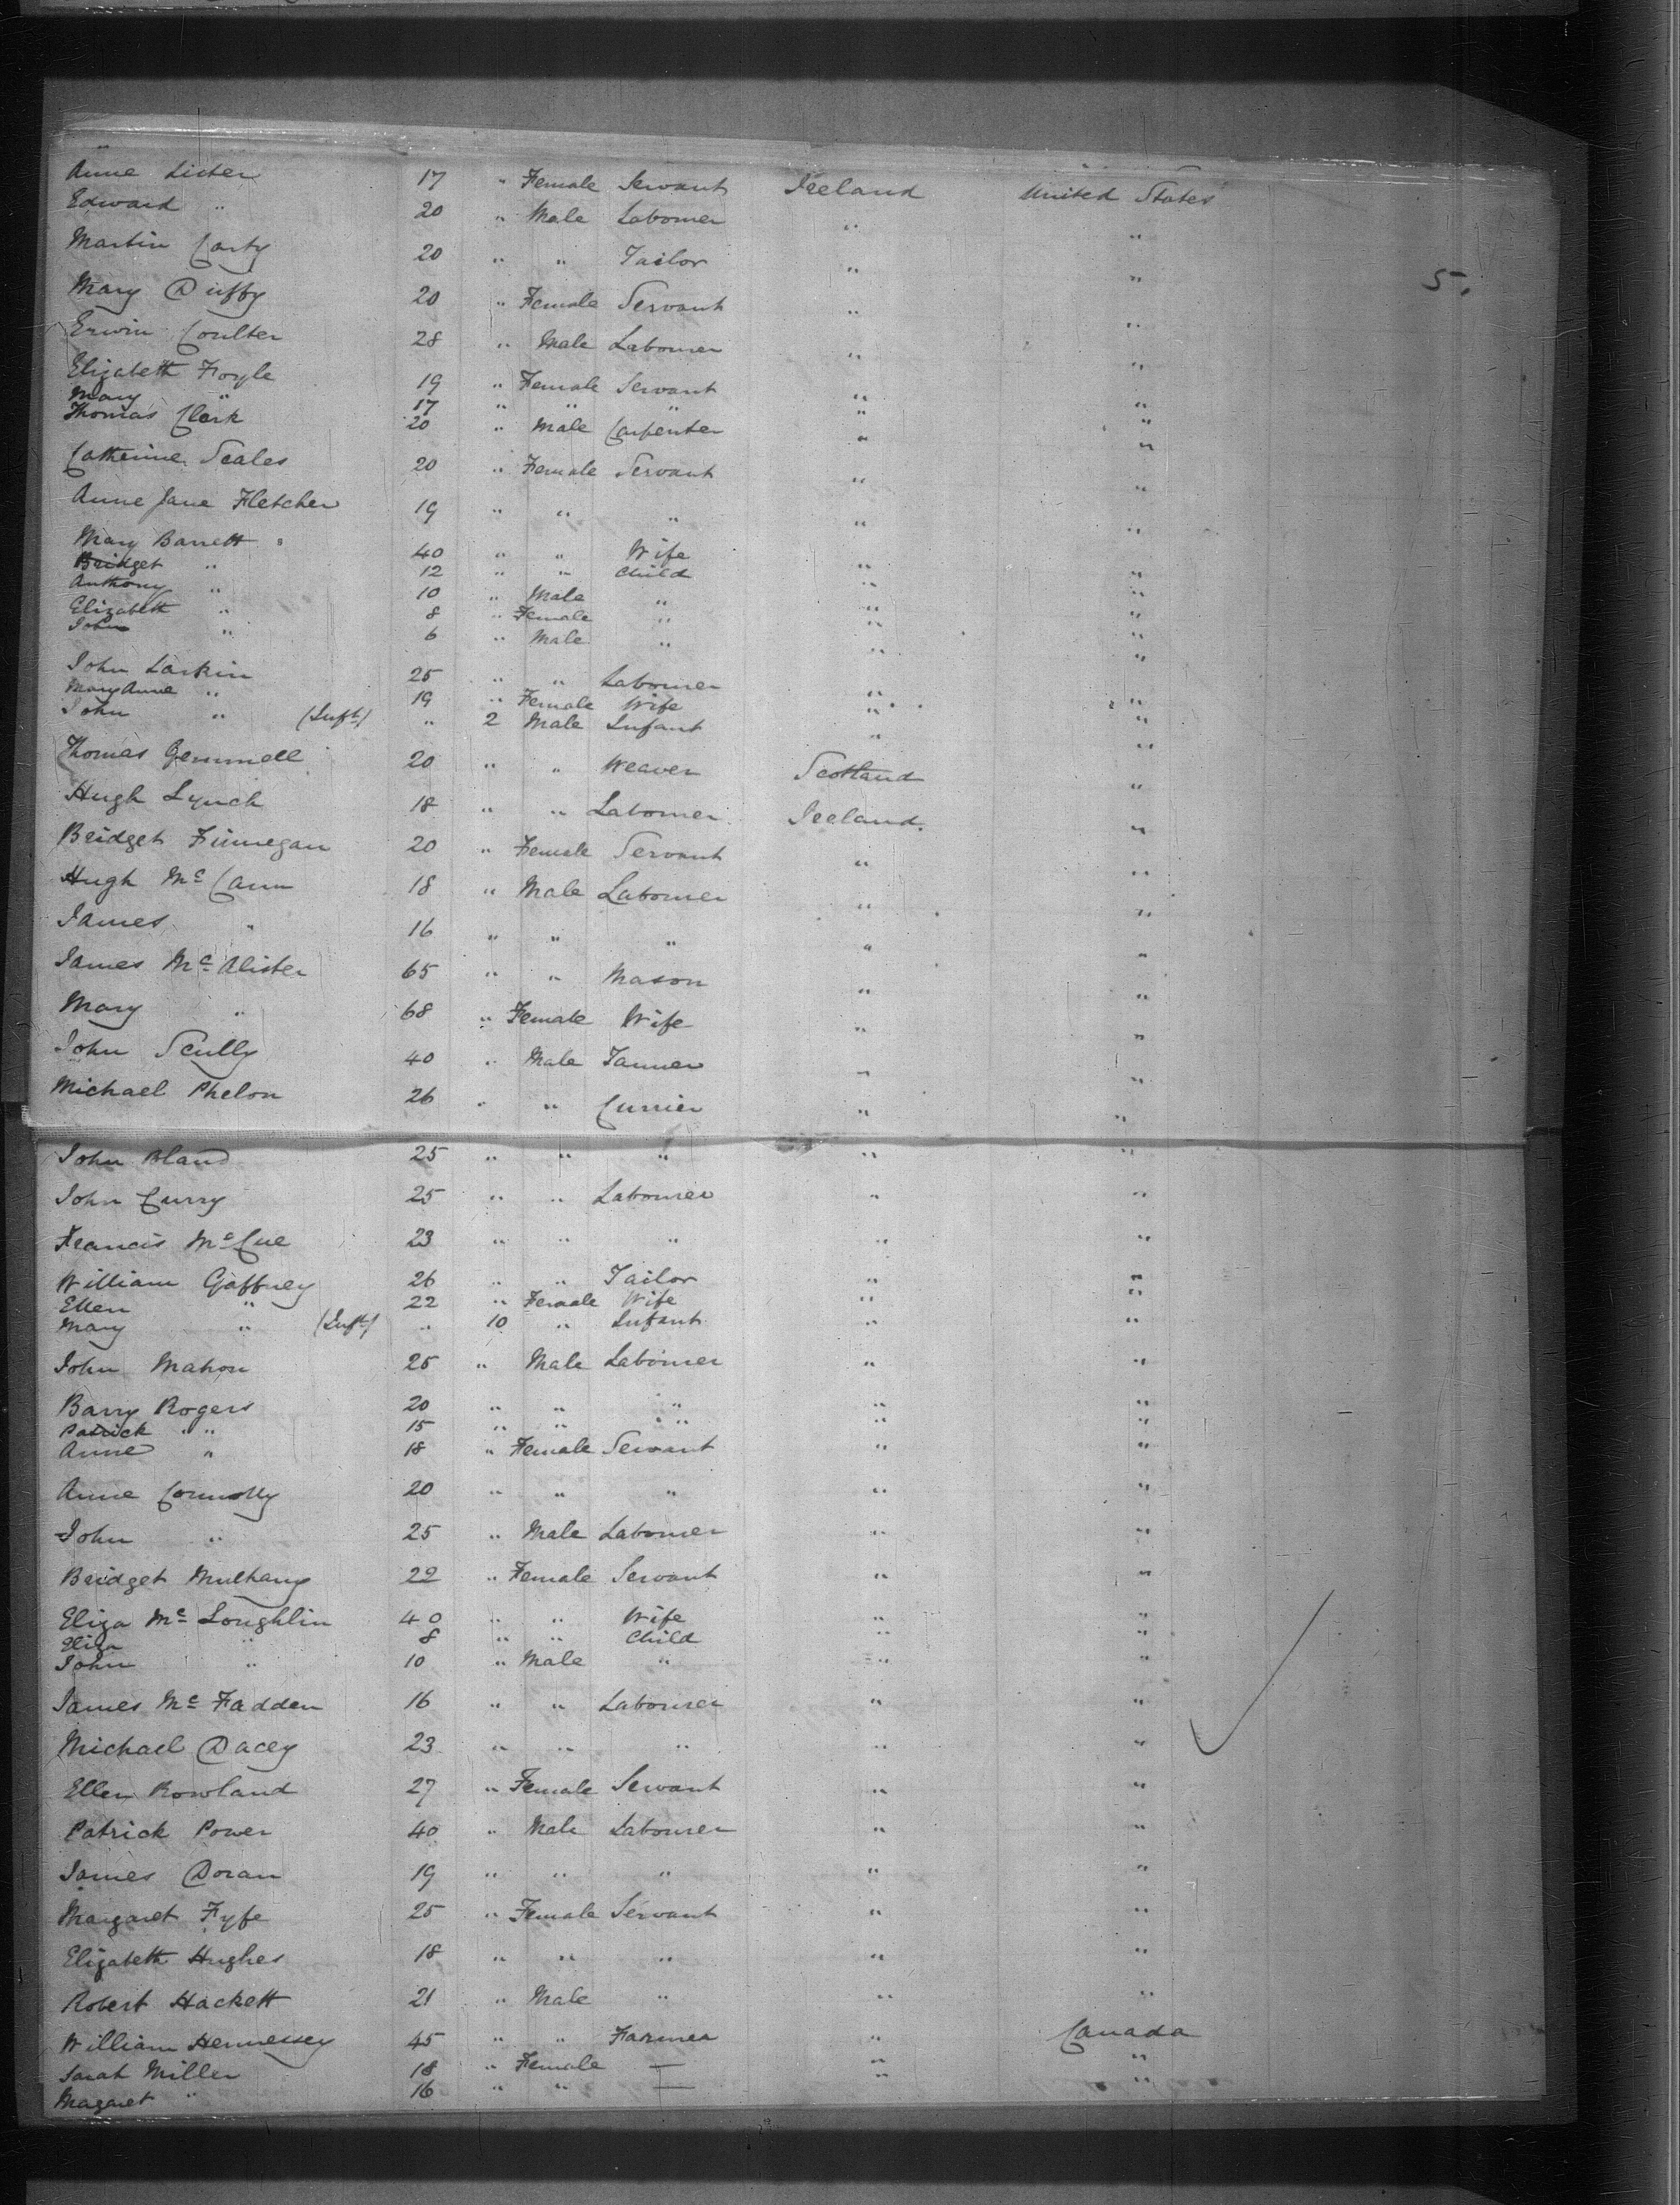 Anne Lister 17 " Female Servant Ireland United States
Edward " 20 " Male Labourer " "
Martin Carty 20 " " Tailor " "
5.
Mary Duffy 20 " Female Servant " "
Erwin Coulter 28 " Male Labourer " "
Elizabeth Foyle 19 " Female Servant " "
Mary " 17 " " " " "
Thomas Clark 20 " Male Carpenter " "
Catherine Scales 20 " Female Servant " "
Anne Jane Fletcher 19 " " " " "
Mary Barrett 40 " " Wife " "
Bridget " 12 " " Child " "
Anthony " 10 " Male " " "
Elizabeth " 8 " Female " " "
John " 6 " Male " " "
John Larkin 25 " " Labourer " "
Mary Anne " 19 " Female Wife " "
John " (Inft) " 2 Male Infant " "
Thomas Gemmell 20 " " Weaver Scotland "
Hugh Lynch 18 " " Labourer Ireland. "
Bridget Finnegan 20 " Female Servant " "
Hugh Mc Cann 18 " Male Labourer " "
James " 16 " " " " "
James Mc Alister 65 " " Mason " "
Mary " 68 " Female Wife " "
John Scully 40 " Male Tanner " "
Michael Phelon 26 " " Currier " "
John Bland 25 " " " " "
John Curry 25 " " Labourer " "
Francis Mc Cue 23 " " " " "
William Gaffney 26 " " Tailor " "
Ellen " 22 " Female Wife " "
Mary " (Inft) " 10 " Infant " "
John Mahon 25 " Male Labourer " "
Barry Rogers 20 " " " " "
Patrick " 15 " " " " "
Anne " 18 " Female Servant " "
Anne Connolly 20 " " " " "
John " 25 " Male Labourer " "
Bridget Mulhany 22 " Female Servant " "
Eliza Mc Loughlin 40 " " Wife " "
Eliza " 8 " " Child " "
John " 10 " Male " " "
James Mc Fadden 16 " " Labourer " "
Michael Dacey 23 " " " " "
Ellen Rowland 27 " Female Servant " "
Patrick Power 40 " Male Labourer " "
James Doran 19 " " " " "
Margaret Fyfe 25 " Female Servant " "
Elizabeth Hughes 18 " " " " "
Robert Hackett 21 " Male " " "
William Hennessey 45 " " Farmer " Canada
Sarah Miller 18 " Female — " "
Magaret " 16 " " — " "